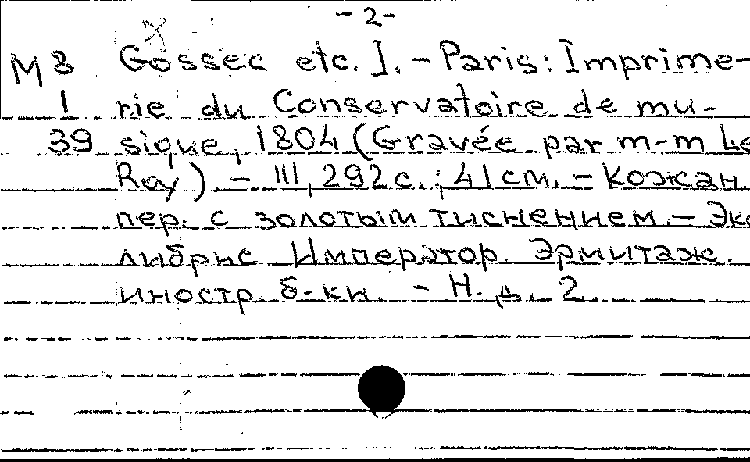 -2-
М 8 Gossec etc.]. - Paris: Imprime-
1 rie du Conservatoire de mu-
39 sique, 1804 (Gravée par m-m Le
Roy) - III, 292 с.; 41 см. - Кожан.
пер. с золотым тиснением. - Экс
либрис Император. Эрмитаж.
иностр. б-ки. - Н. д. 2